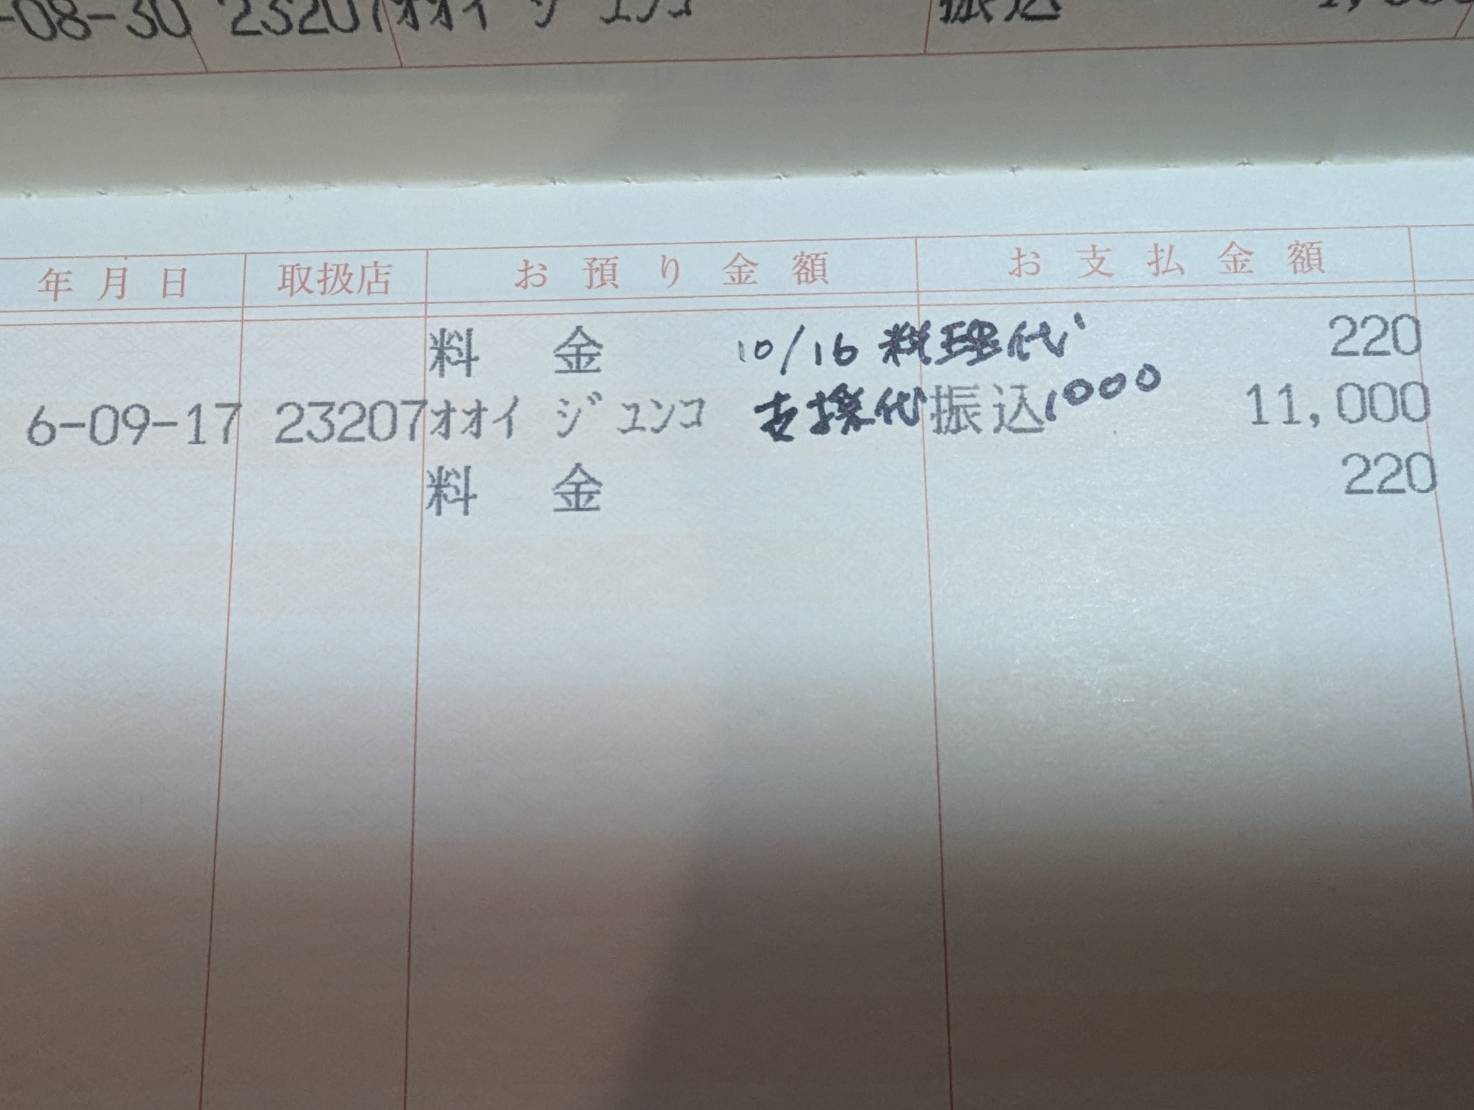 -08-30 23207 オオイ ジユンコ 振込
年月日 取扱店 お預り金額 お支払金額
料 金 10/16 料理代 220
6-09-17 23207 オオイ ジユンコ 支援代 振込 1000 11,000
料 金 220